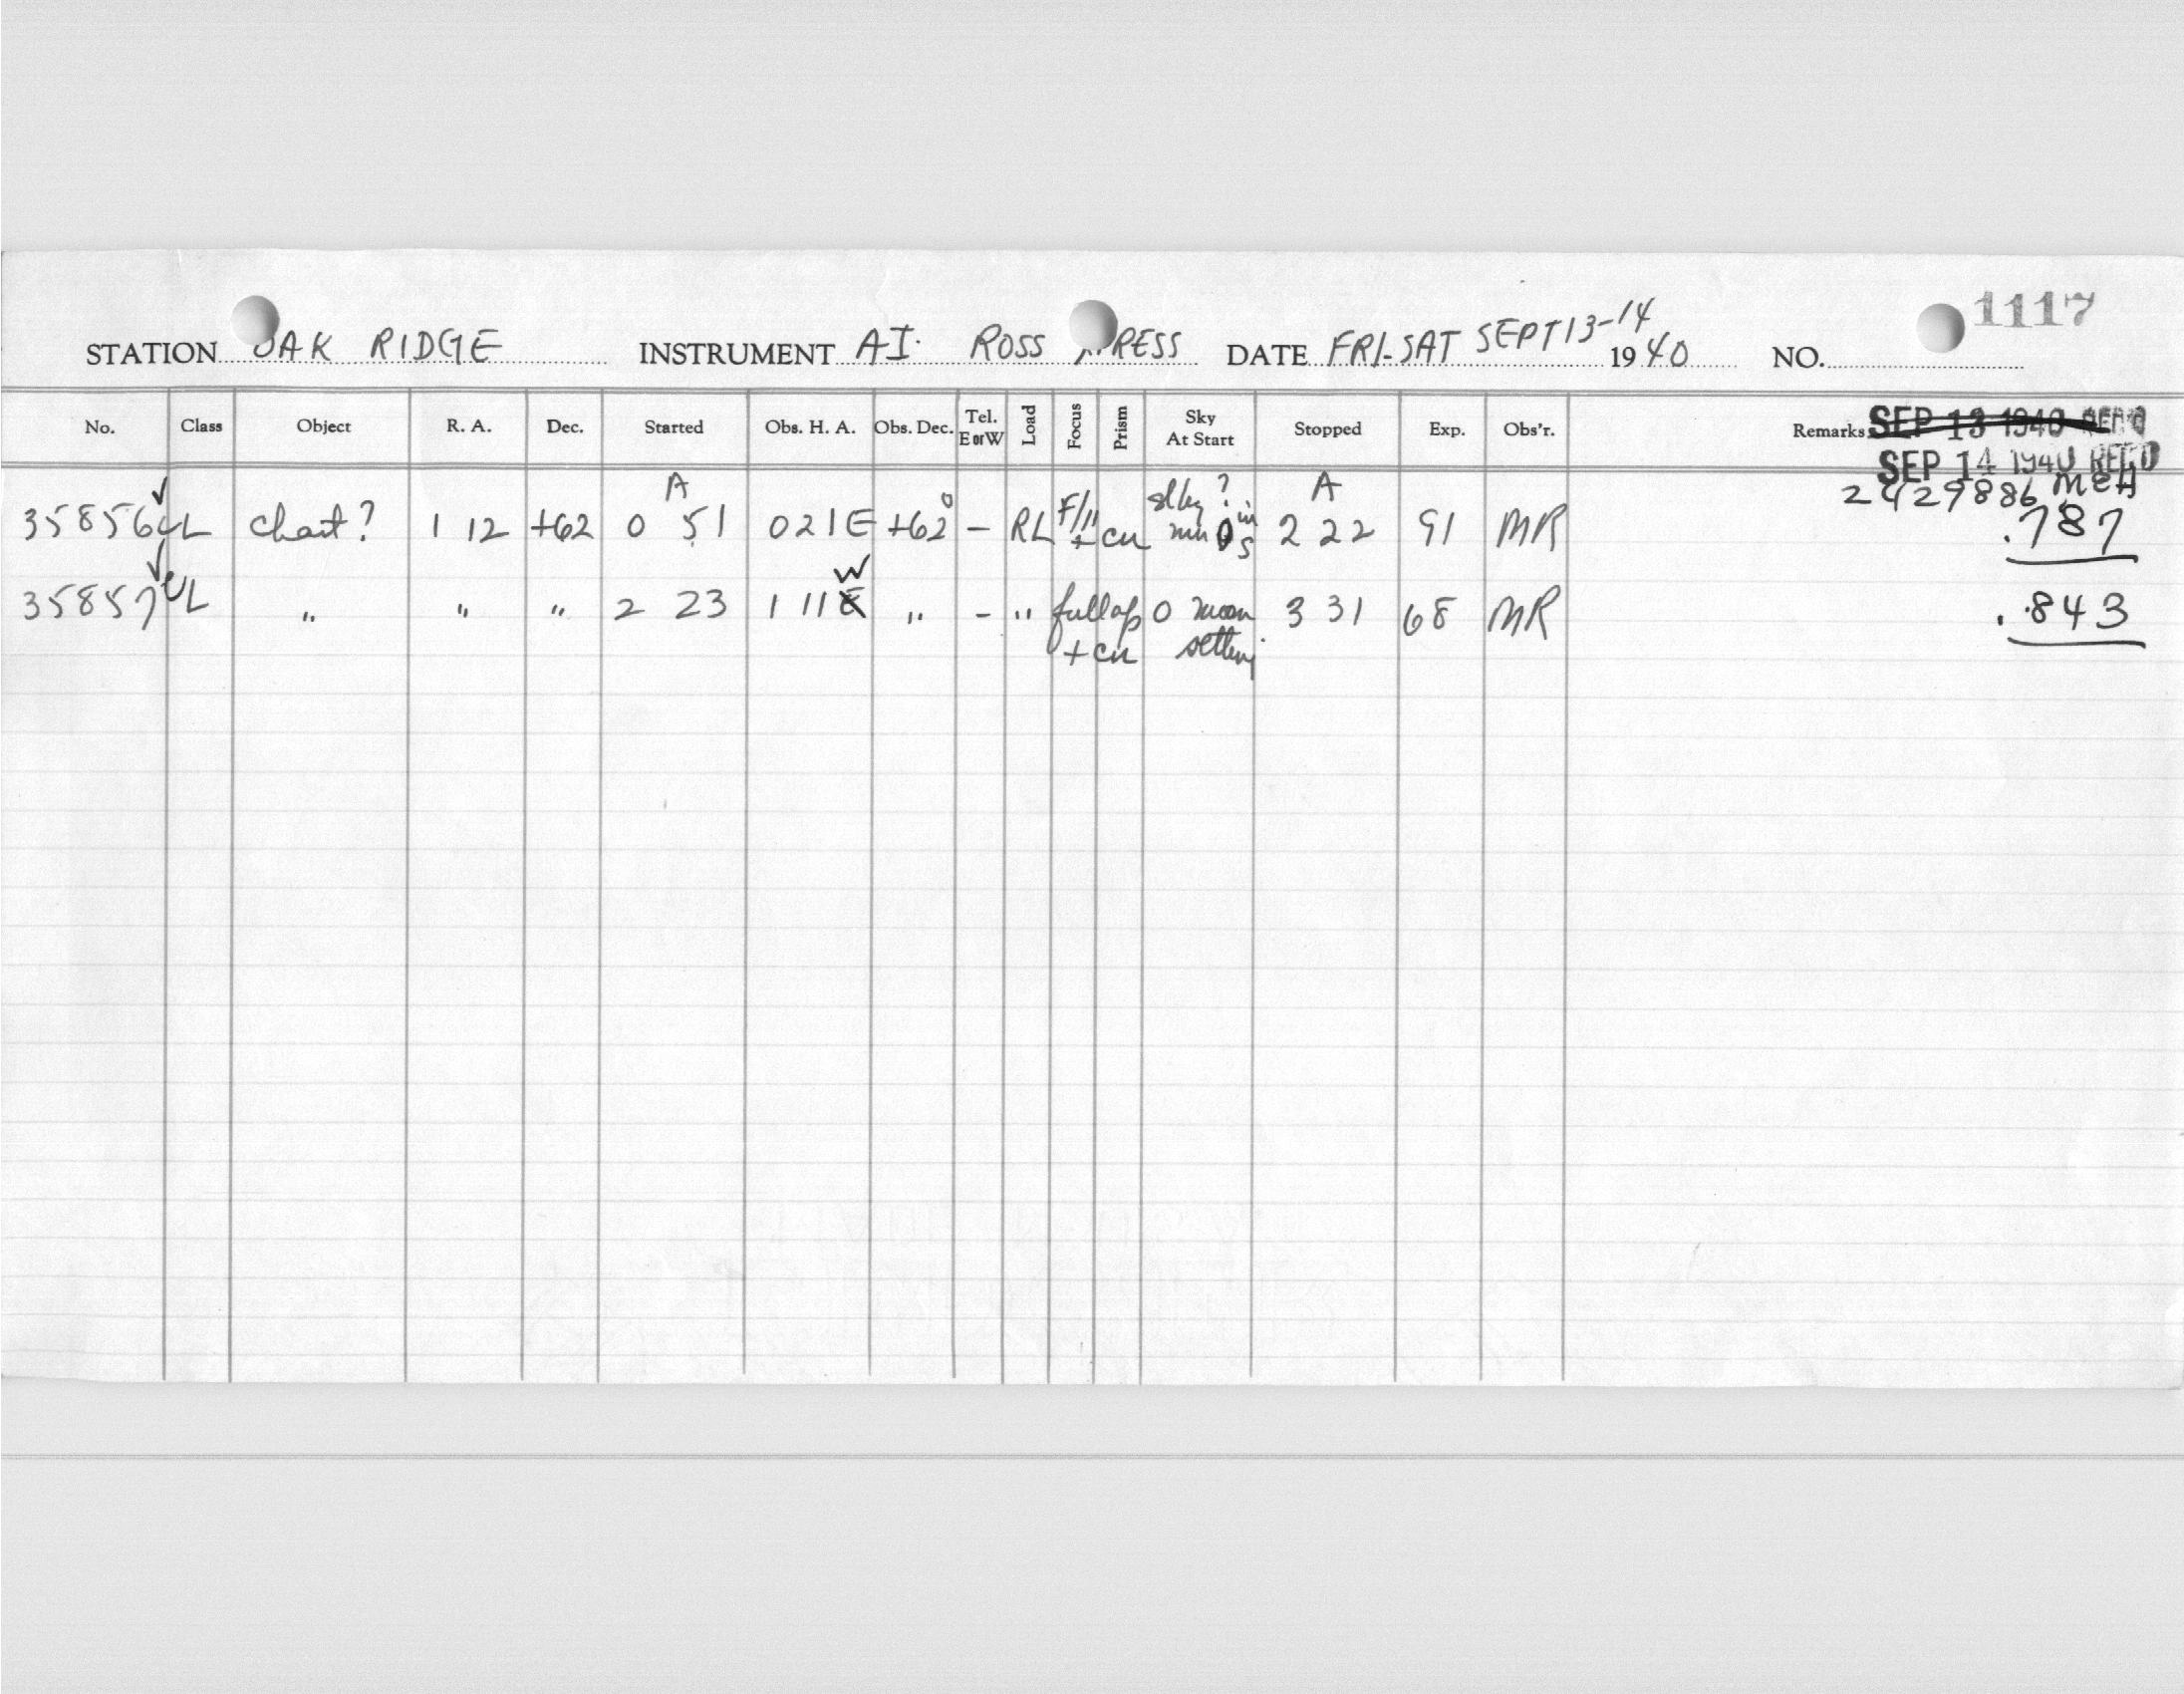 1117
STATION OAK RIDGE INSTRUMENT AI. ROSS PRESS DATE FRI-SAT SEPT 13-14 1940 NO.
No. Class Object R. A. Dec. Started Obs. H. A. Obs. Dec. Tel. E or W Load Focus Prism Sky At Start Stopped Exp. Obs'r. Remarks SEP 13 1940 REC'D
SEP 14 1940 REC'D
2429886 MCH
35856 ✓ L Chart? 1 12 +62 A 0 51 0 21 E +62° – RL F/11 + cu A 2 22 91 MR .787
35857 ✓ L " " " 2 23 1 11 W " – " full ap + cu 0 moon setting 3 31 68 MR .843